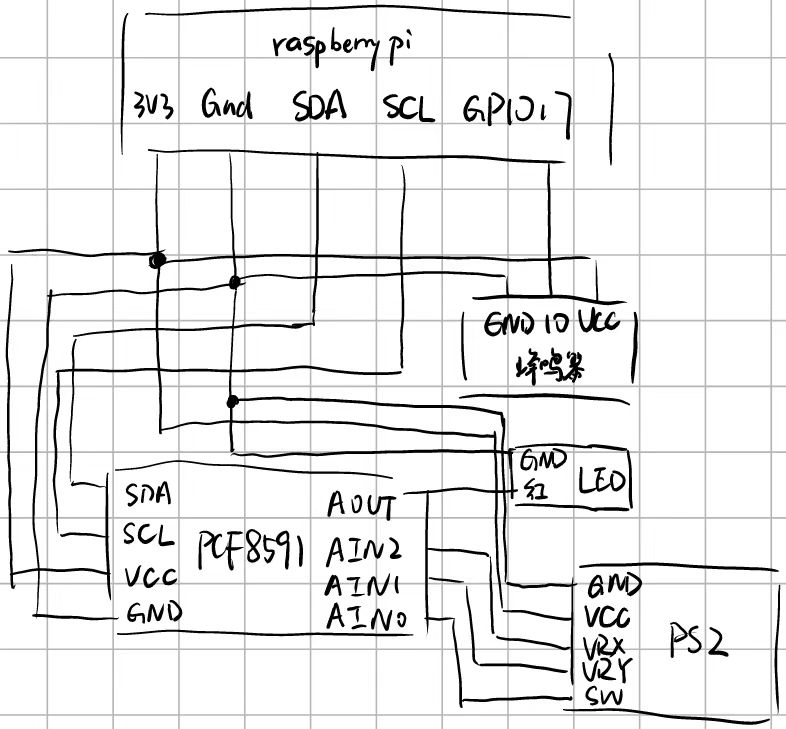 raspberry pi
3V3 Gnd SDA SCL GPIO17
GND IO VCC
蜂鸣器
GND
红 LED
SDA
SCL
VCC
GND
PCF8591
AOUT
AIN2
AIN1
AIN0
GND
VCC
VRX
VRY
SW
PS2